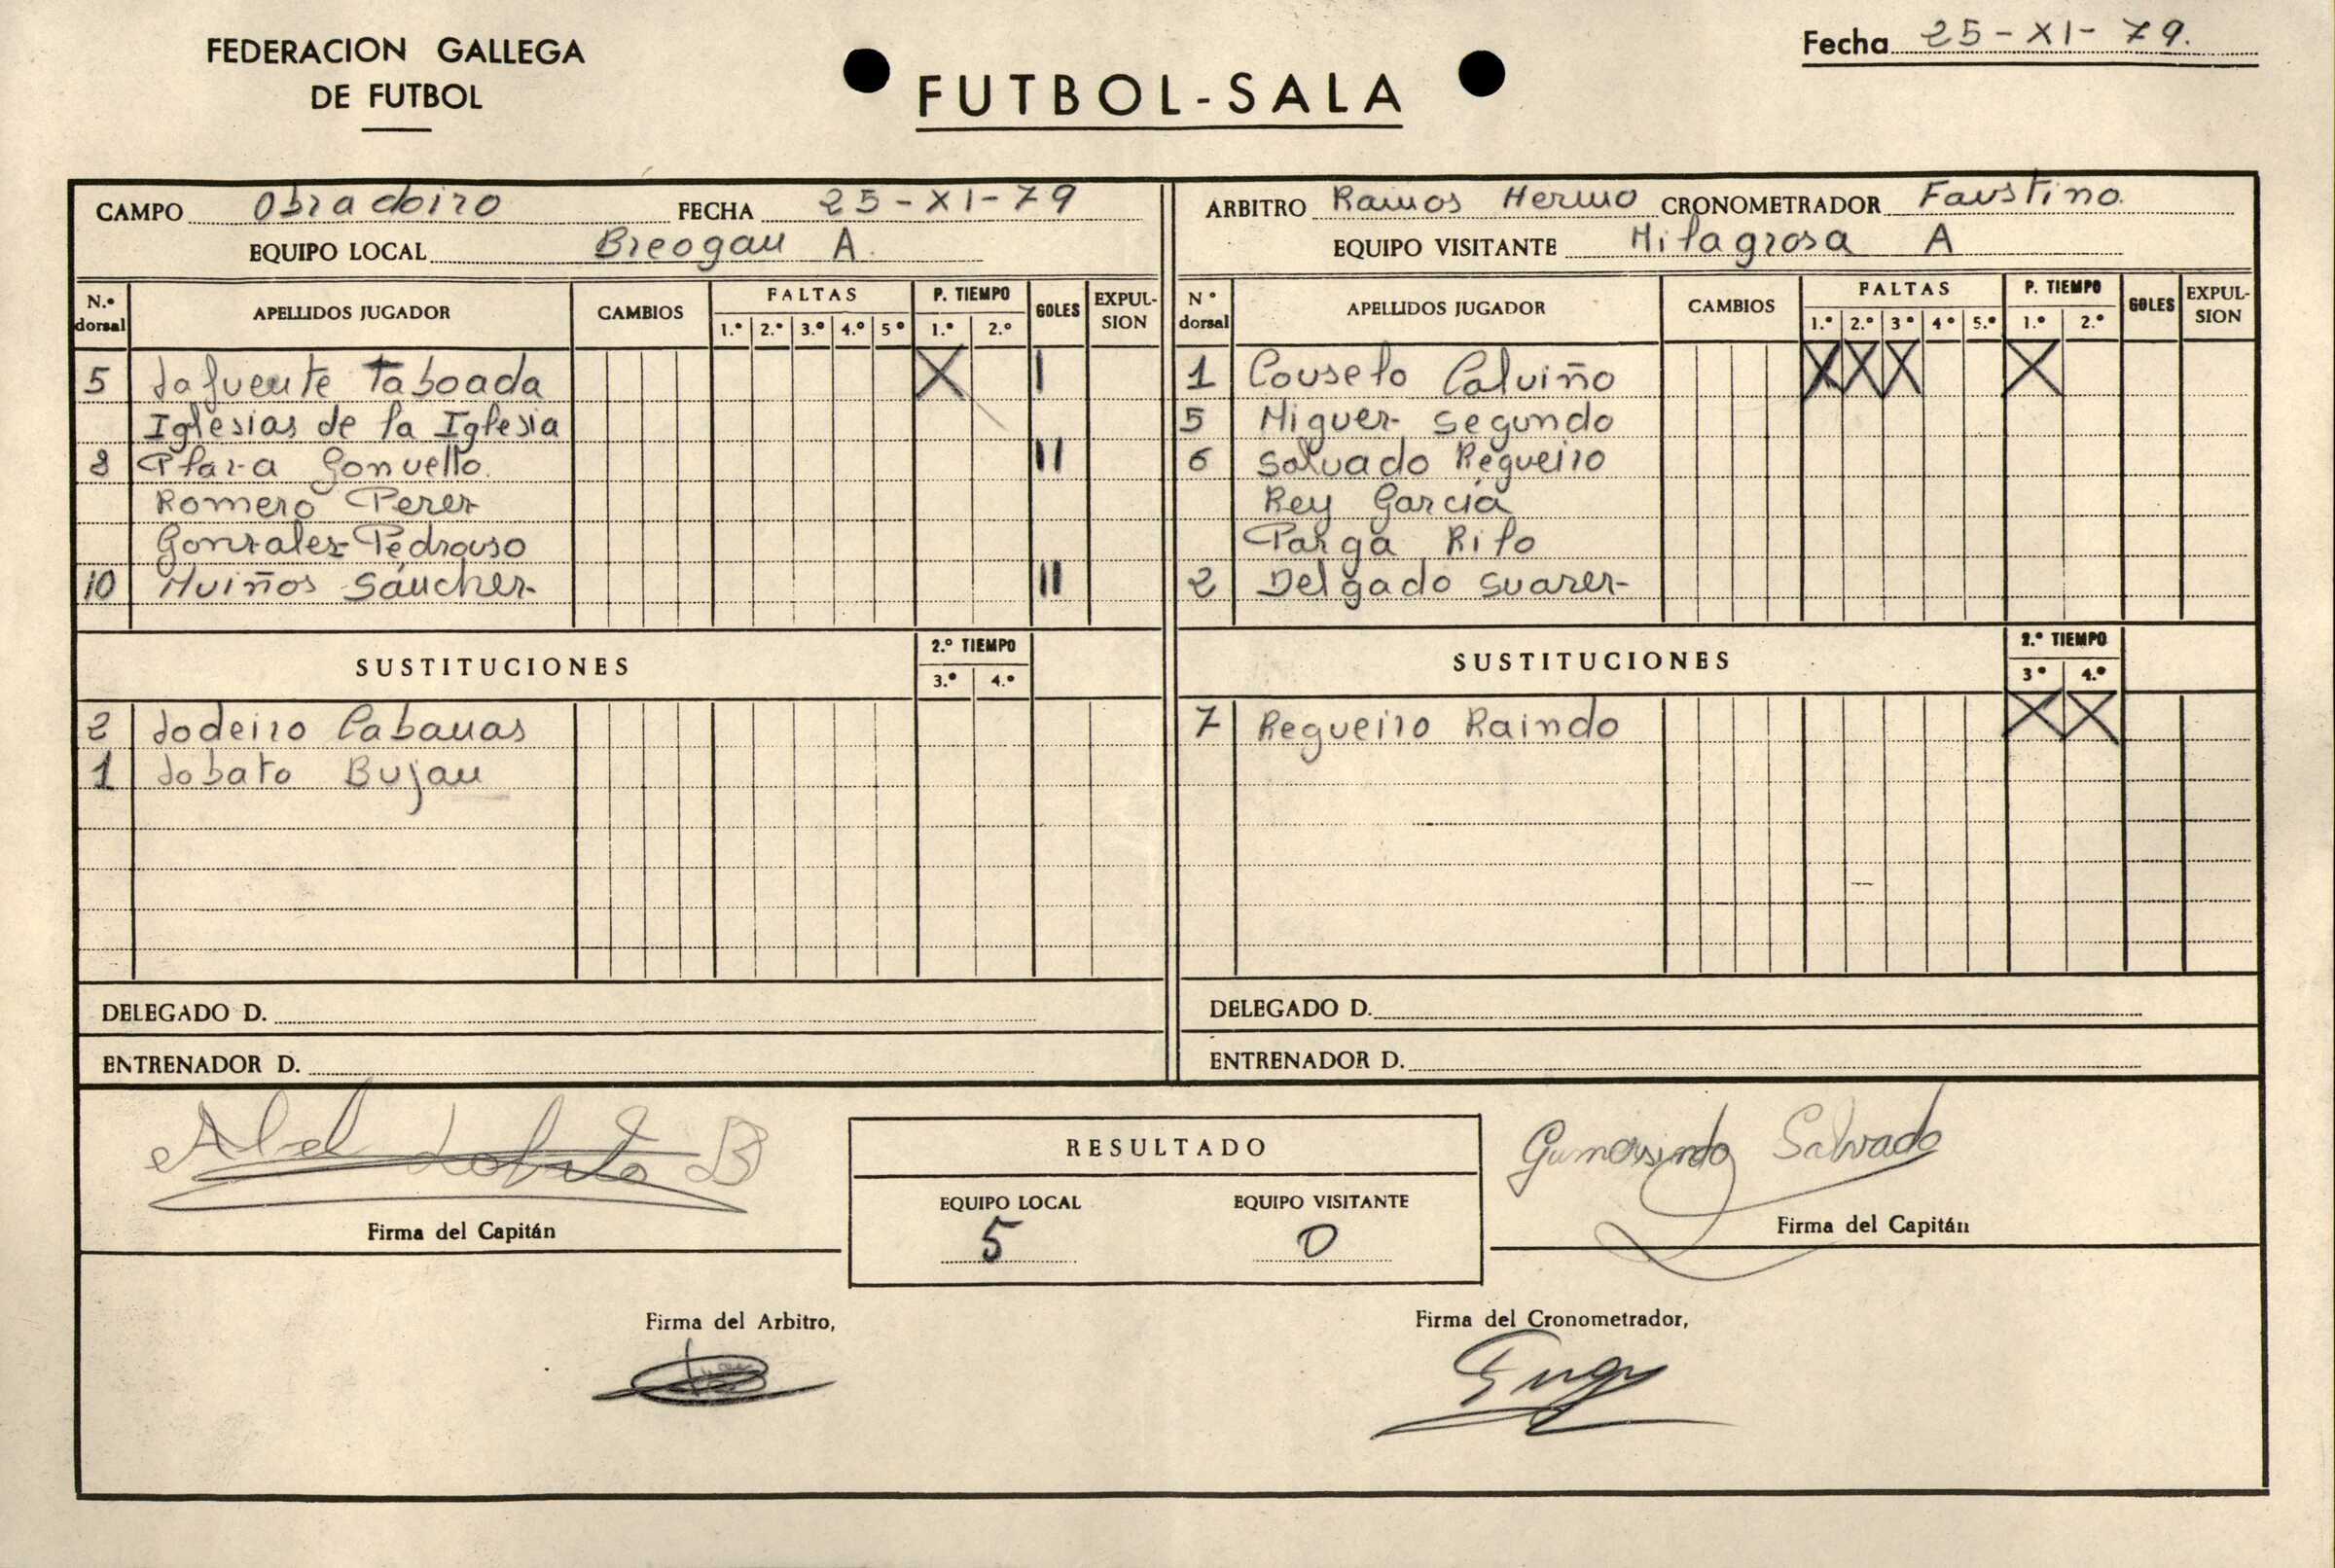 FEDERACION GALLEGA
DE FUTBOL
FUTBOL-SALA
Fecha 25-XI-79.
CAMPO Obradoiro FECHA 25-XI-79
EQUIPO LOCAL Breogan A.
N.º dorsal APELLIDOS JUGADOR CAMBIOS FALTAS 1.º 2.º 3.º 4.º 5º P. TIEMPO 1.º 2.º GOLES EXPUL-SION
5 Lafuente Taboada X I
Iglesias de la Iglesia
8 Plaza Gonvello. II
Romero Perez
Gonzalez Pedrouso
10 Muiños Sánchez II
SUSTITUCIONES 2.º TIEMPO 3.º 4.º
2 Lodeiro Cabanas
1 Lobato Bujan
DELEGADO D.
ENTRENADOR D.
ARBITRO Ramos Hermo CRONOMETRADOR Faustino.
EQUIPO VISITANTE Milagrosa A
Nº dorsal APELLIDOS JUGADOR CAMBIOS FALTAS 1.º 2.º 3º 4º 5.º P. TIEMPO 1.º 2.º GOLES EXPUL-SION
1 Couselo Calviño X X X X
5 Miguez Segundo
6 Salvado Regueiro
Rey García
Parga Rilo
2 Delgado Suarez
SUSTITUCIONES 2.º TIEMPO 3º 4.º
7 Regueiro Raindo X X
DELEGADO D.
ENTRENADOR D.
Abel Lobato B
Firma del Capitán
RESULTADO
EQUIPO LOCAL EQUIPO VISITANTE
5 0
Gumersindo Salvado
Firma del Capitán
Firma del Arbitro,
Firma del Cronometrador,